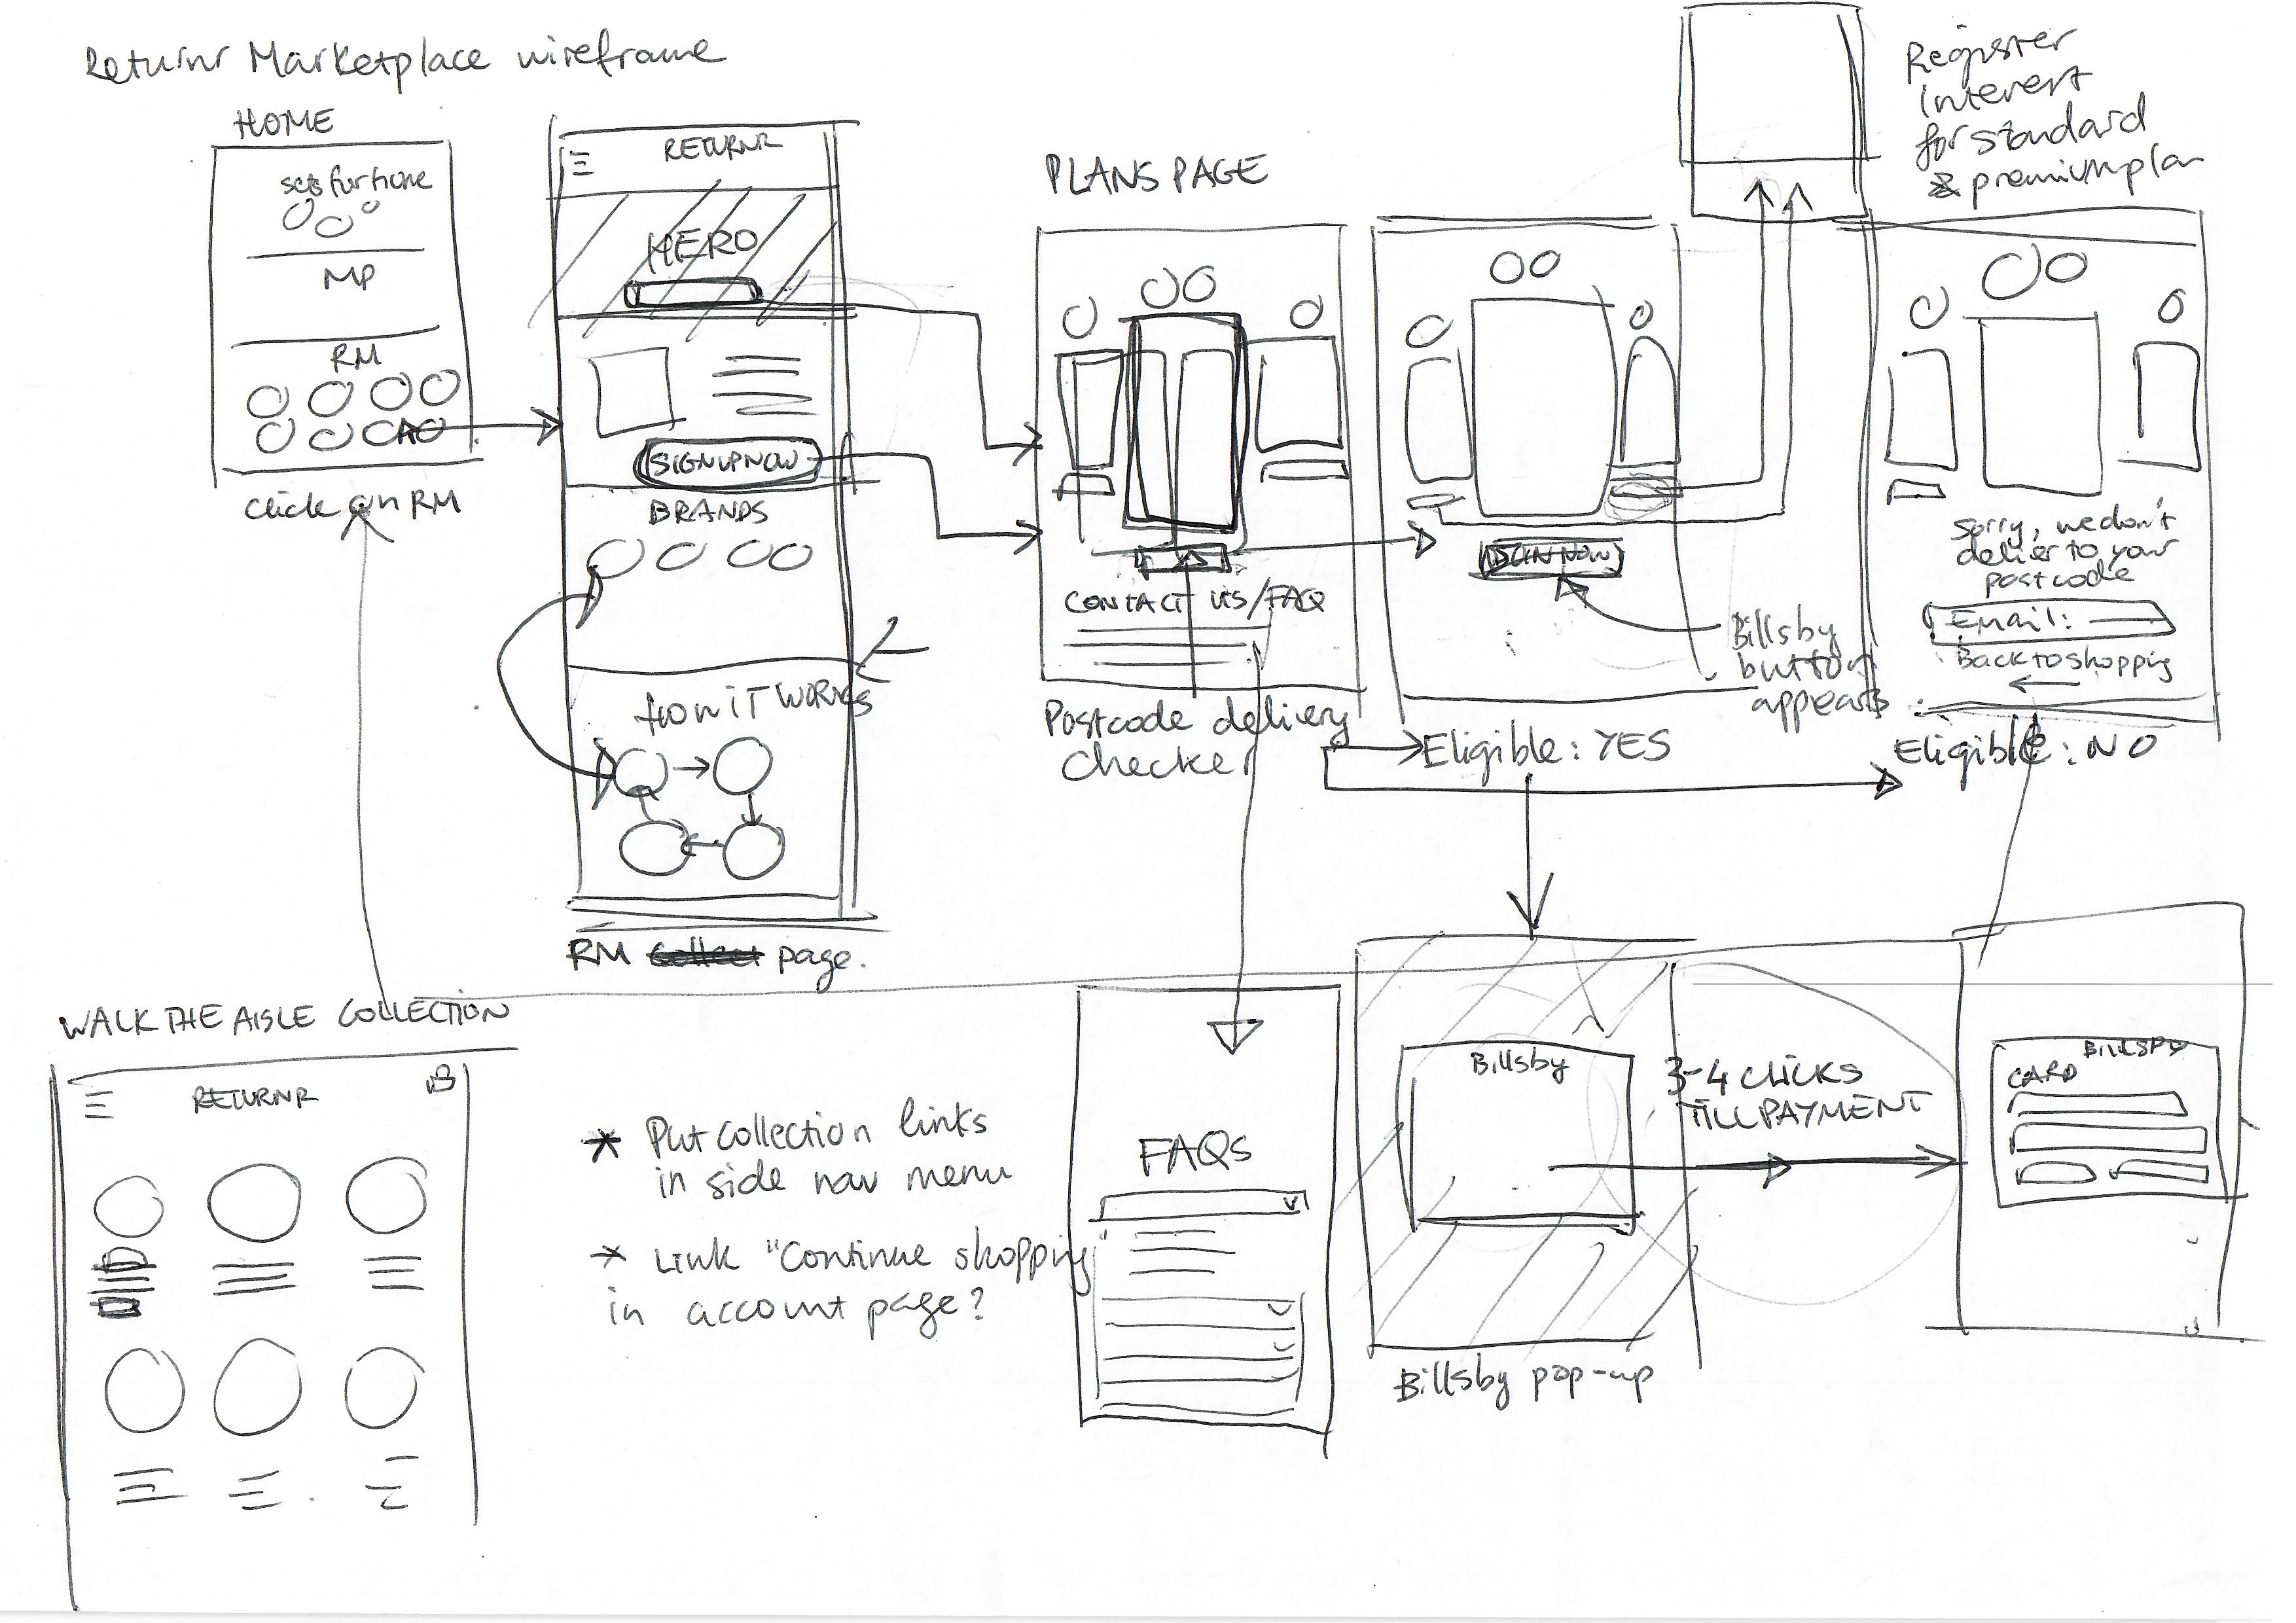 Returnr Marketplace wireframe
HOME
sets for home
MP
RM
Click on RM
RETURNR
HERO
SIGN UP NOW
BRANDS
HOW IT WORKS
RM page.
PLANS PAGE
CONTACT US/FAQ
Postcode delivery
Checker
Register
interest
for standard
& premium plan
JOIN NOW
Billsby
button
appears
Eligible: YES
Sorry, we don't
deliver to your
postcode
Email:
Back to shopping
Eligible: NO
WALK THE AISLE COLLECTION
RETURNR
* Put collection links
in side nav menu
Link "Continue shopping"
in account page?
FAQs
Billsby
Billsby pop-up
3-4 CLICKS
TILL PAYMENT
BILLSBY
CARD